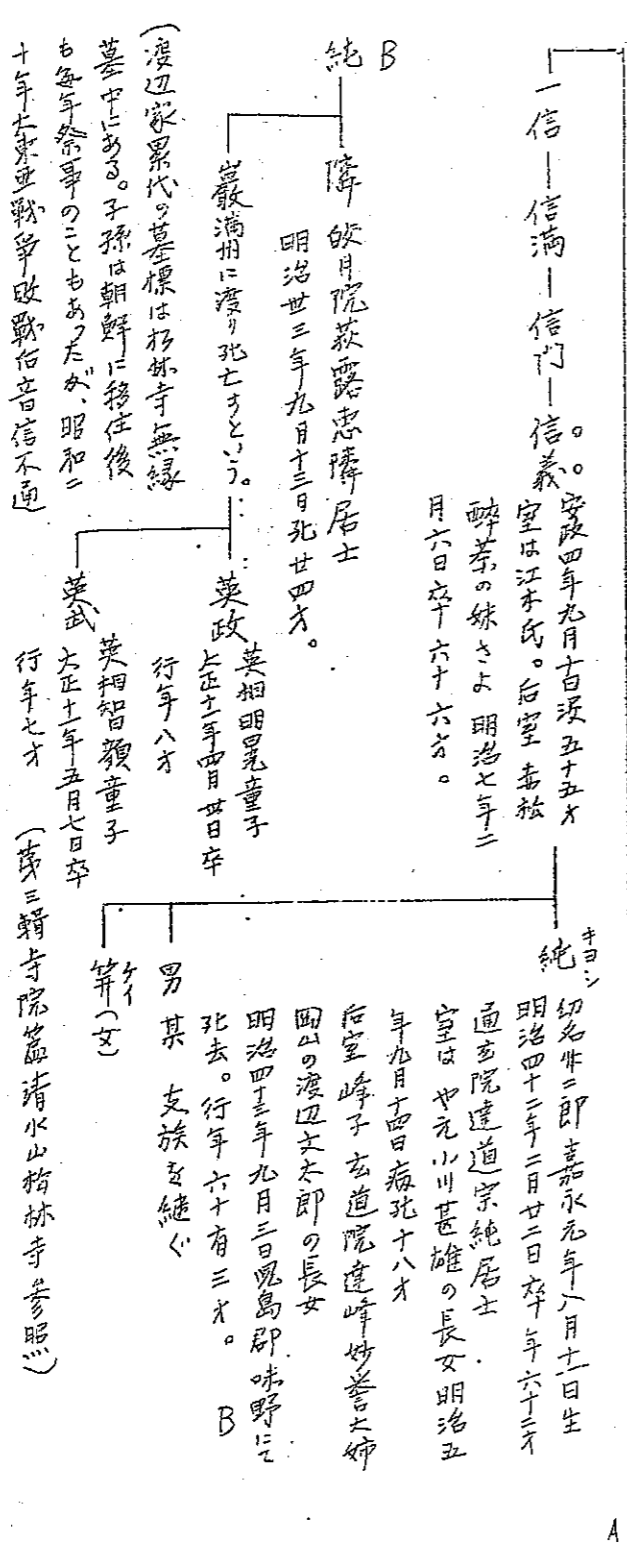 一信―信満―信門―信義
安政四年九月十日没 五十五才
室は江木氏。后室 赤松
酔茶の妹さよ 明治七年二
月六日卒 六十六才。
純 キヨシ
幼名作二郎 嘉永元年八月十一日生
明治四十二年二月廿二日卒 年六十二才
通玄院達道宗純居士
室は やえ 小川甚雄の長女 明治五
年九月十四日病死 十八才
后室 峰子 玄道院達峰妙誉大姉
岡山の渡辺文太郎の長女
明治四十三年九月三日児島郡味野にて
死去。行年六十有三才。 B
男 某 支族を継ぐ
筓(女) ケイ
A
B
純
隣 皎月院萩露恵隣居士
明治廿三年九月十三日死 廿四才。
巌 満州に渡り死亡すといふ。
英政 英相明晃童子
大正十一年四月廿日卒
行年八才
英武 英相智顔童子
大正十一年五月七日卒
行年七才
(渡辺家累代の墓標は松林寺無縁
墓中にある。子孫は朝鮮に移住後
も毎年祭事のこともあったが、昭和二
十年大東亜戦争敗戦后音信不通
(第三輯寺院篇清水山松林寺参照)